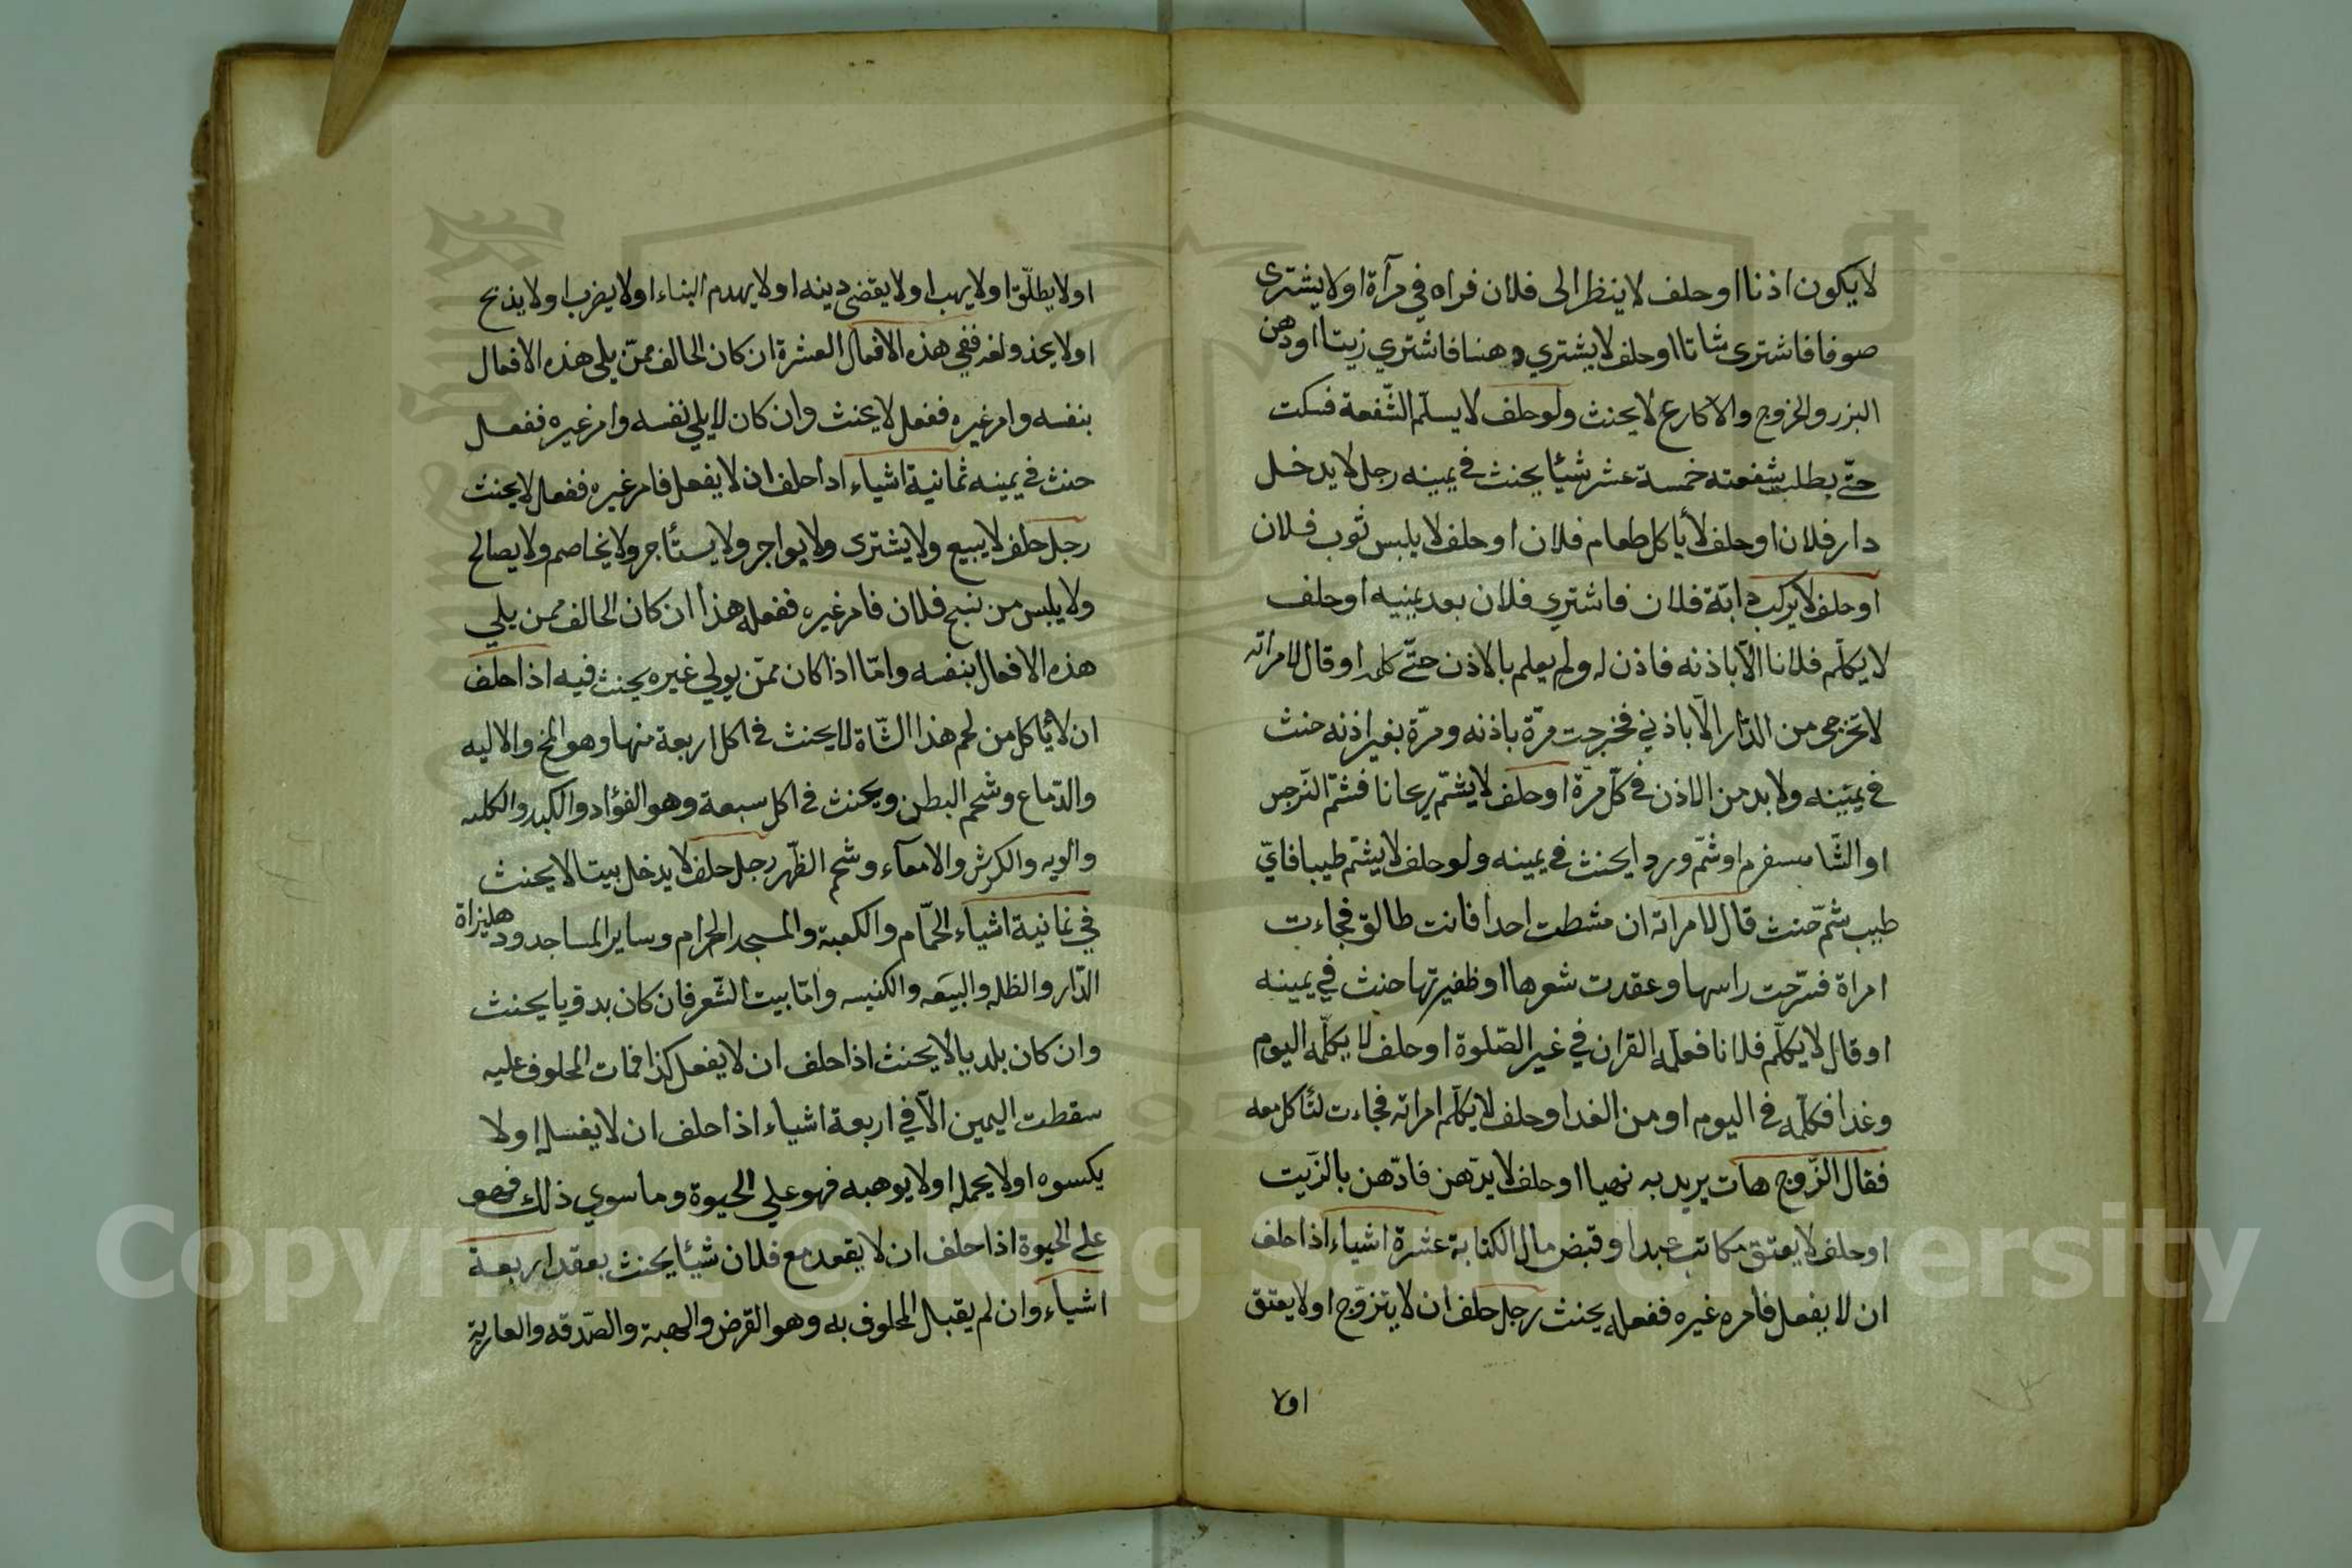 لا يكون اذنا او حلف لا ينظر الى فلان فراه في مرآة او لا يشترى
صوفا فاشترى شاتا او حلف لا يشتري دهنا فاشتري زيتا او دهن
البزر والخروج والاكارع لا يحنث ولو حلف لا يسلّم الشّفعة فسكت
حتّى بطلب شفعته خمسة عشر شيئا يحنث في يمينه رجل لا يدخل
دار فلان او حلف لا يأكل طعام فلان او حلف لا يلبس ثوب فلان
او حلف لا يركب دابّة فلان فاشتري فلان بعد يمنيه او حلف
لا يكلّم فلانا الّا باذنه فاذن له ولم يعلم بالاذن حتّى كلمه او قال لامراته
لا تخرجى من الدّار الّا باذني فخرجت مرّة باذنه ومرّة بغير اذنه حنث
في يمينه ولا بد من الاذن في كلّ مرّة او حلف لا يشمّ ريحانا فشمّ النّرجس
او الشّامسفرم او شمّ وردا يحنث في يمينه ولو حلف لا يشمّ طيبا فايّ
طيب شمّ حنث قال لامراته ان مشطت احدا فانت طالق فجاءت
امراة فسرّحت راسها وعقدت شعرها او ظفيرتها حنث في يمينه
او قال لا يكلّم فلانا فعلّمه القران في غير الصّلوة او حلف لا يكلّمه اليوم
وغدا فكلّمه في اليوم او من الغد او حلف لا يكلّم امراته فجاءت لتأكل معه
فقال الزّوج هات يريد به نهيا او حلف لا يدّهن فادّهن بالزّيت
او حلف لا يعتق مكاتب عبدا وقبض مال الكتابة عشرة اشياء اذا حلف
ان لا يفعل فامره غيره ففعله يحنث رجل حلف ان لا يتزوّج او لا يعتق
اولا
او لا يطلّق او لا يهب او لا يقضى دينه او لا يهدم البناء او لا يضرب او لا يذبح
او لا يحذو لغه ففي هذه الافعال العشرة ان كان الحالف ممّن يلى هذه الافعال
بنفسه وامر غيره ففعل لا يحنث وان كان لا يلي نفسه وامر غيره ففعل
حنث في يمينه ثمانية اشياء اذا حلف ان لا يفعل فامر غيره ففعل لا يحنث
رجل حلف لا يبيع ولا يشترى ولا يواجر ولا يستأجر ولا يخاصم ولا يصالح
ولا يلبس من نسج فلان فامر غيره ففعله هذا ان كان الحالف ممن يلي
هذه الافعال بنفسه وامّا اذا كان ممّن يولي غيره يحنث فيه اذا حلف
ان لا يأكل من لحم هذا الشّاة لا يحنث في اكل اربعة منها وهو المخ والاليه
والدّماع وشحم البطن ويحنث في اكل سبعة وهو الفؤاد والكبد والكليه
والريه والكرش والامعآء وشحم الظّهر رجل حلف لا يدخل بيتا لا يحنث
في ثمانية اشياء الحمّام والكعبة والمسجد الحرام وساير المساجد ودهليزاة
الدّار والظله والبيعه والكنيسه وامّا بيت الشّعر فان كان بدويا يحنث
وان كان بلديا لا يحنث اذا حلف ان لا يفعل كذا فمات المحلوف عليه
سقطت اليمين الّا في اربعة اشياء اذا حلف ان لا يغسله او لا
يكسوه او لا يحمله او لا يوهبه فهو علي الحيوة وما سوي ذلك فهو
على الحيوة اذا حلف ان لا يقعد مع فلان شيئا يحنث بعقد اربعة
اشياء وان لم يقبل المحلوف به وهو القرض والهبة والصّدقه والعارية
Copyright © King Saud University